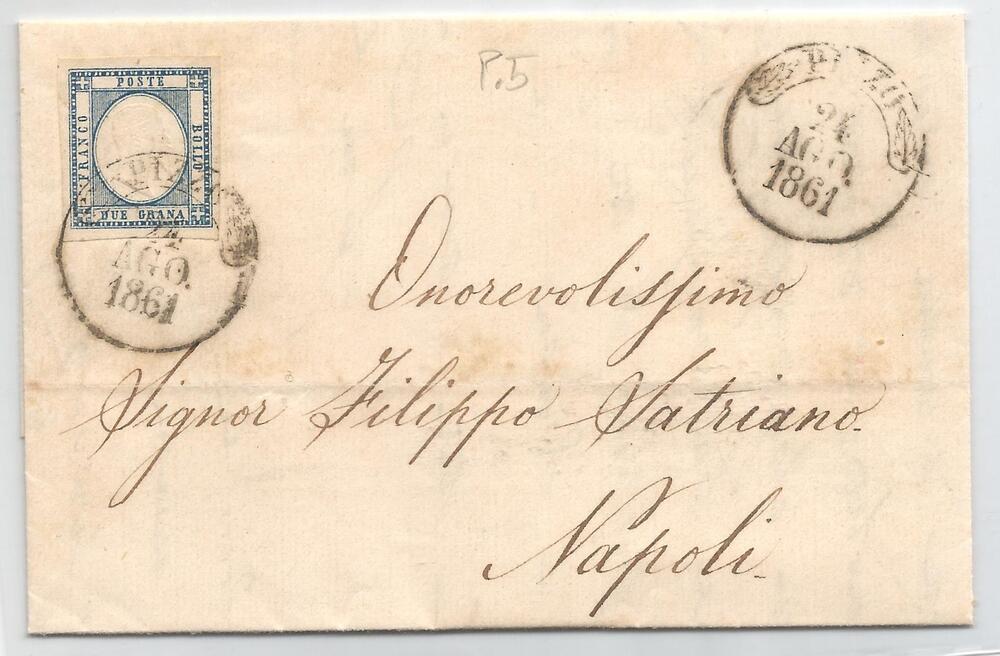 P.5
POSTE
FRANCO
BOLLO
DUE GRANA
PIZZO
24
AGO.
1861
PIZZO
24
AGO.
1861
Onorevolissimo
Signor Filippo Satriano.
Napoli.